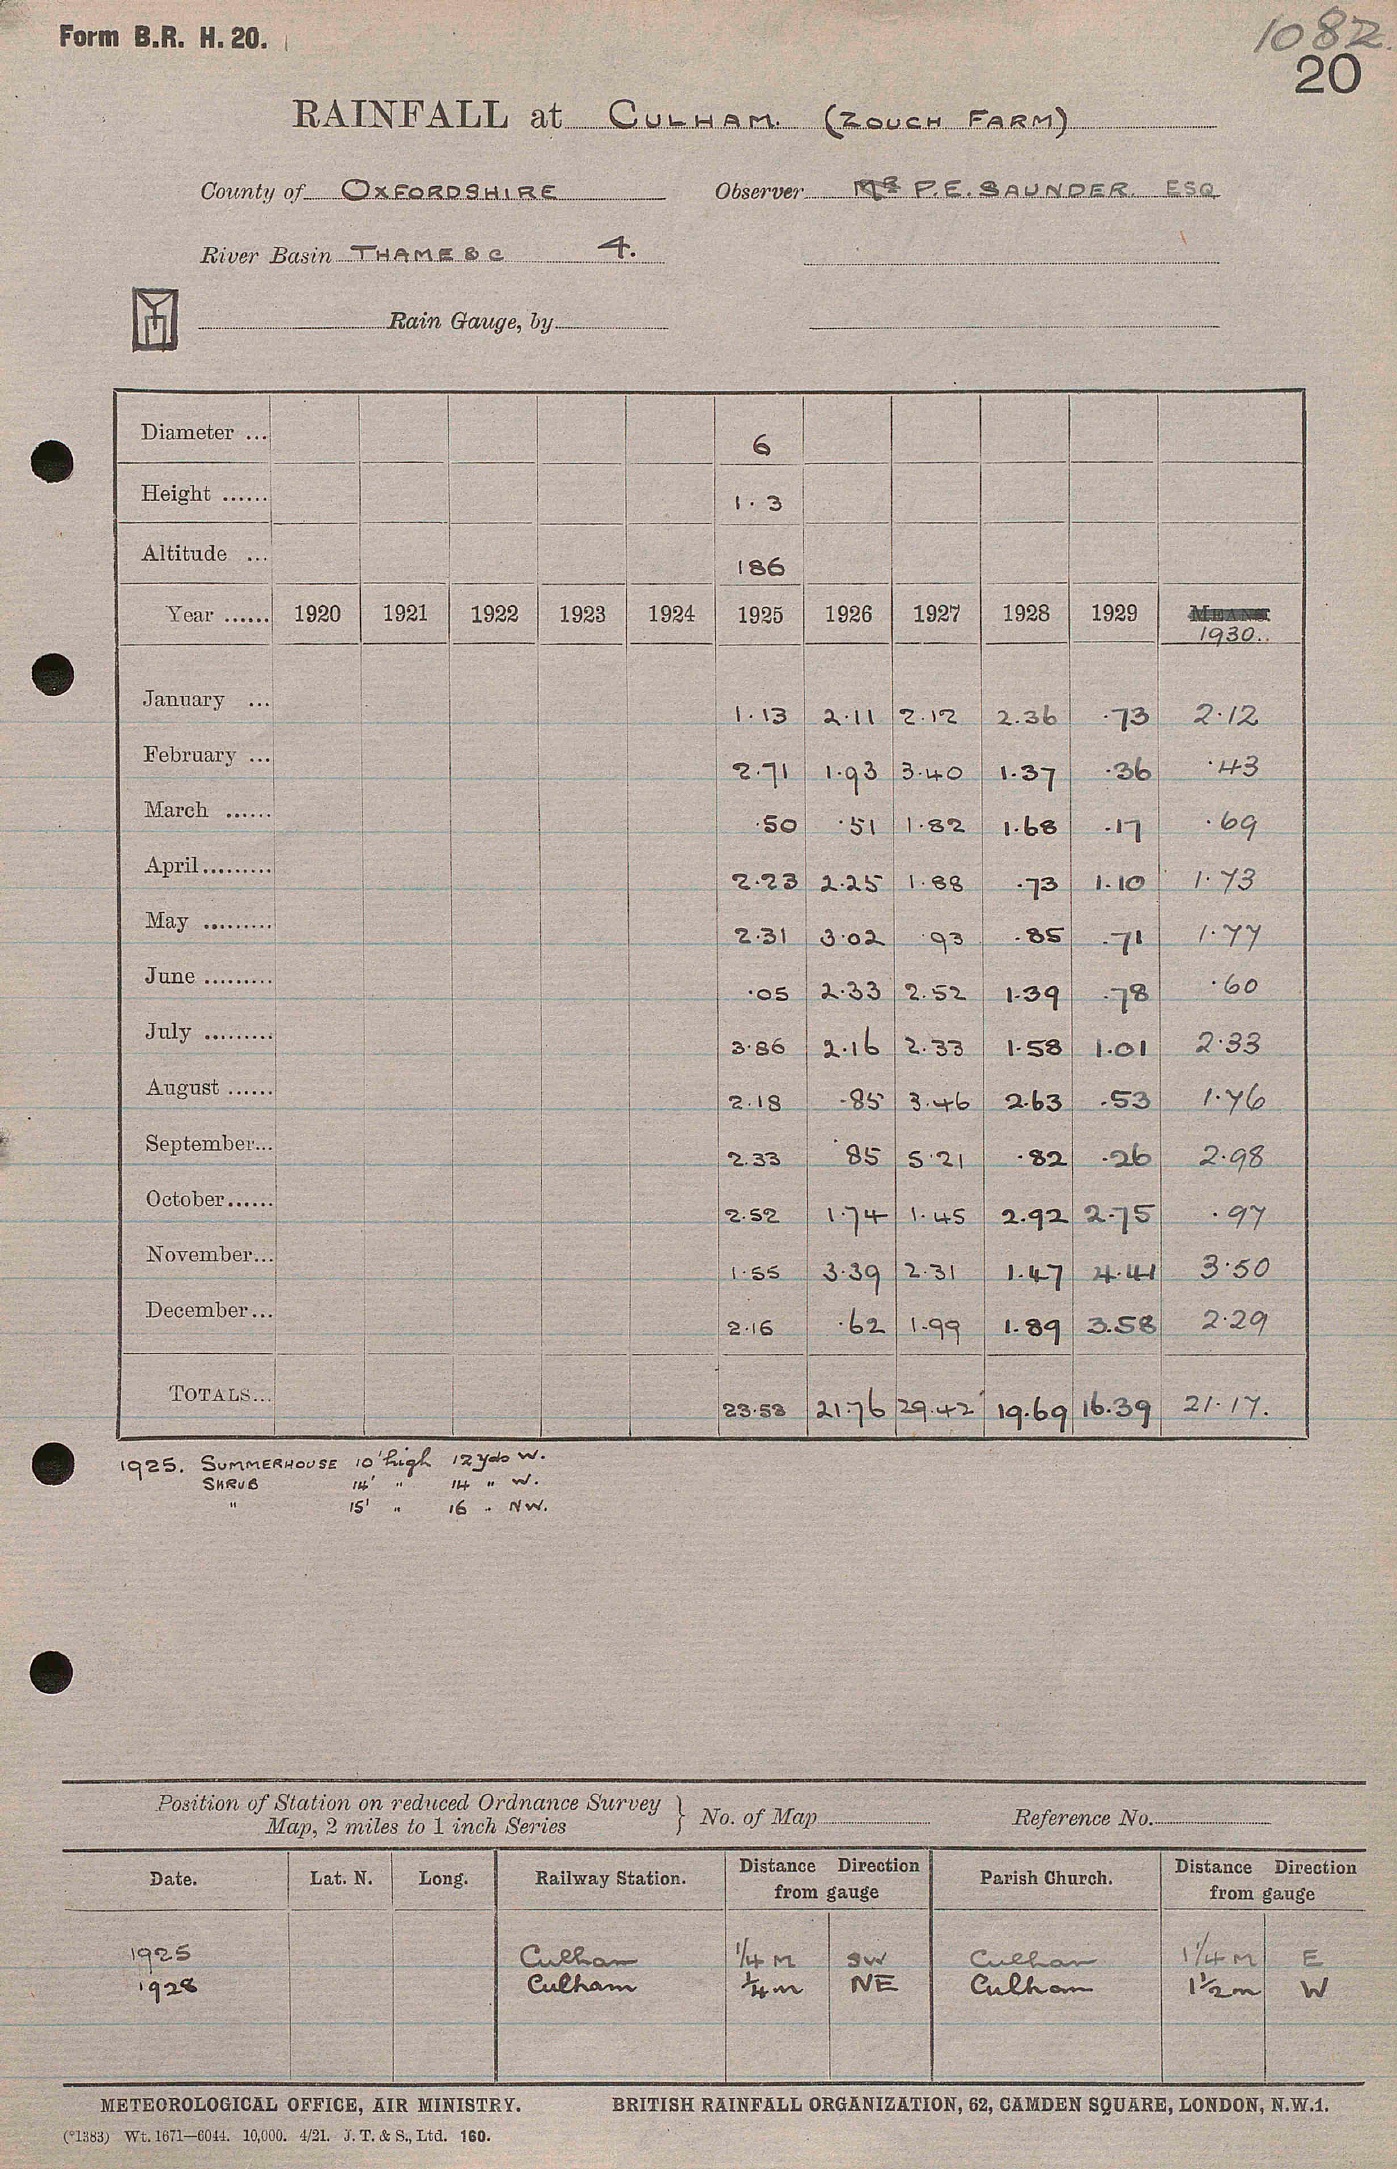 Form B.R. H. 20.
1082.
20
RAINFALL at CULHAM. (ZOUCH FARM)
County of OXFORDSHIRE Observer MR P.E. SAUNDER. ESQ
River Basin THAMES &C 4.
Rain Gauge, by
Diameter ... 6
Height ...... 1.3
Altitude ... 186
Year ...... 1920 1921 1922 1923 1924 1925 1926 1927 1928 1929 MEANS
1930..
January ... 1.13 2.11 2.12 2.36 .73 2.12
February ... 2.71 1.93 3.40 1.37 .36 .43
March ...... .50 .51 1.82 1.68 .17 .69
April......... 2.23 2.25 1.88 .73 1.10 1.73
May ......... 2.31 3.02 .93 .85 .71 1.77
June ......... .05 2.33 2.52 1.39 .78 .60
July ......... 3.86 2.16 2.33 1.58 1.01 2.33
August ...... 2.18 .85 3.46 2.63 .53 1.76
September... 2.33 .85 5.21 .82 .26 2.98
October...... 2.52 1.74 1.45 2.92 2.75 .97
November... 1.55 3.39 2.31 1.47 4.41 3.50
December... 2.16 .62 1.99 1.89 3.58 2.29
TOTALS... 23.53 21.76 29.42 19.69 16.39 21.17.
1925. SUMMERHOUSE 10' high 12 yds W.
SHRUB 14' " 14 " W.
" 15' " 16 " NW.
Position of Station on reduced Ordnance Survey
Map, 2 miles to 1 inch Series } No. of Map Reference No.
Date. Lat. N. Long. Railway Station. Distance Direction from gauge Parish Church. Distance Direction from gauge
1925 Culham 1/4 M SW Culham 1 1/4 M E
1928 Culham 1/4 m NE Culham 1 1/2 m W
METEOROLOGICAL OFFICE, AIR MINISTRY. BRITISH RAINFALL ORGANIZATION, 62, CAMDEN SQUARE, LONDON, N.W.1.
(*1383) Wt. 1671—6044. 10,000. 4/21. J. T. & S., Ltd. 160.